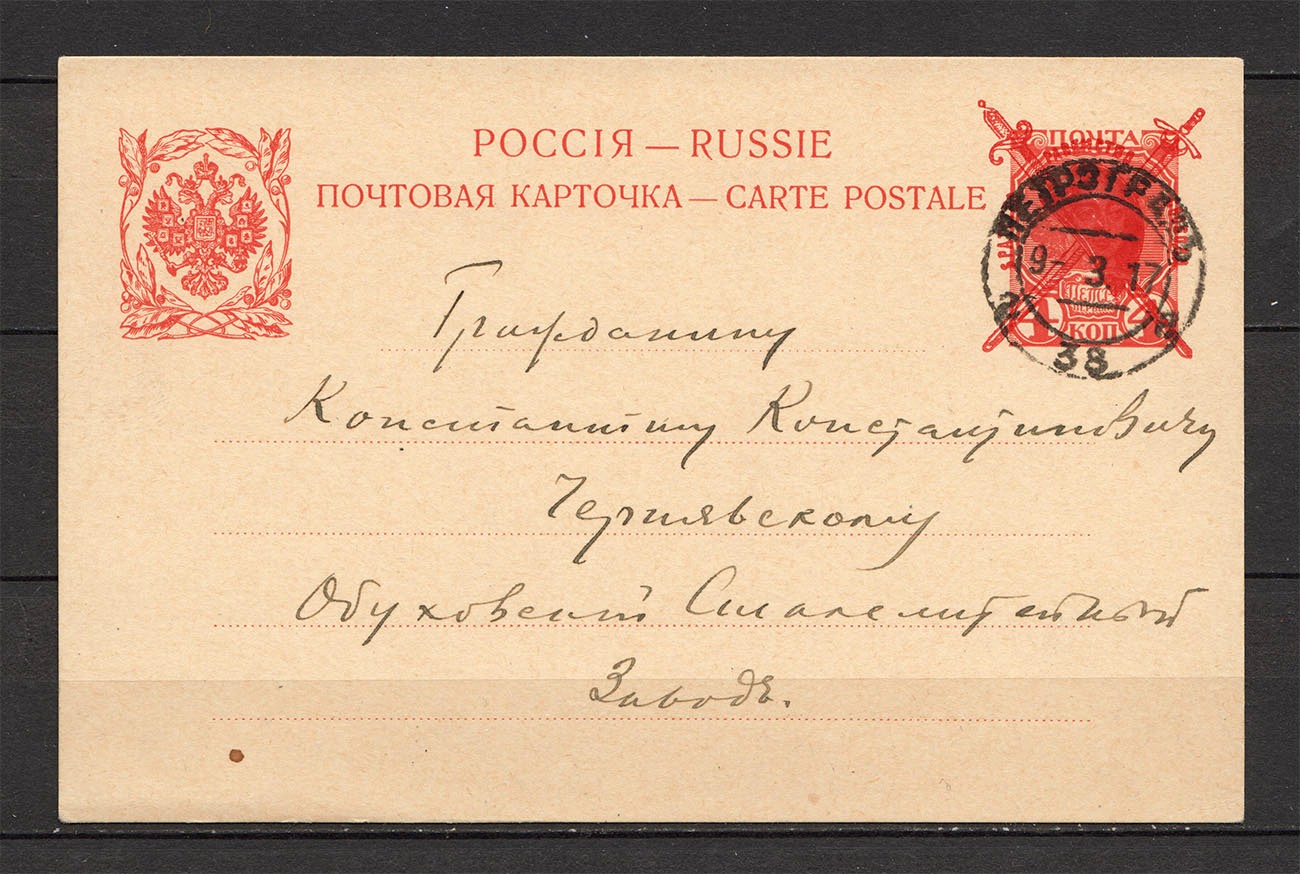 РОССІЯ — RUSSIE
ПОЧТОВАЯ КАРТОЧКА — CARTE POSTALE
ПОЧТА
ПЕТРОГРАДЪ
9- 3. 17
38
4 КОП 4
Гражданину
Константину Константиновичу
Чернявскому
Обуховский Сталелитейный
Заводъ.